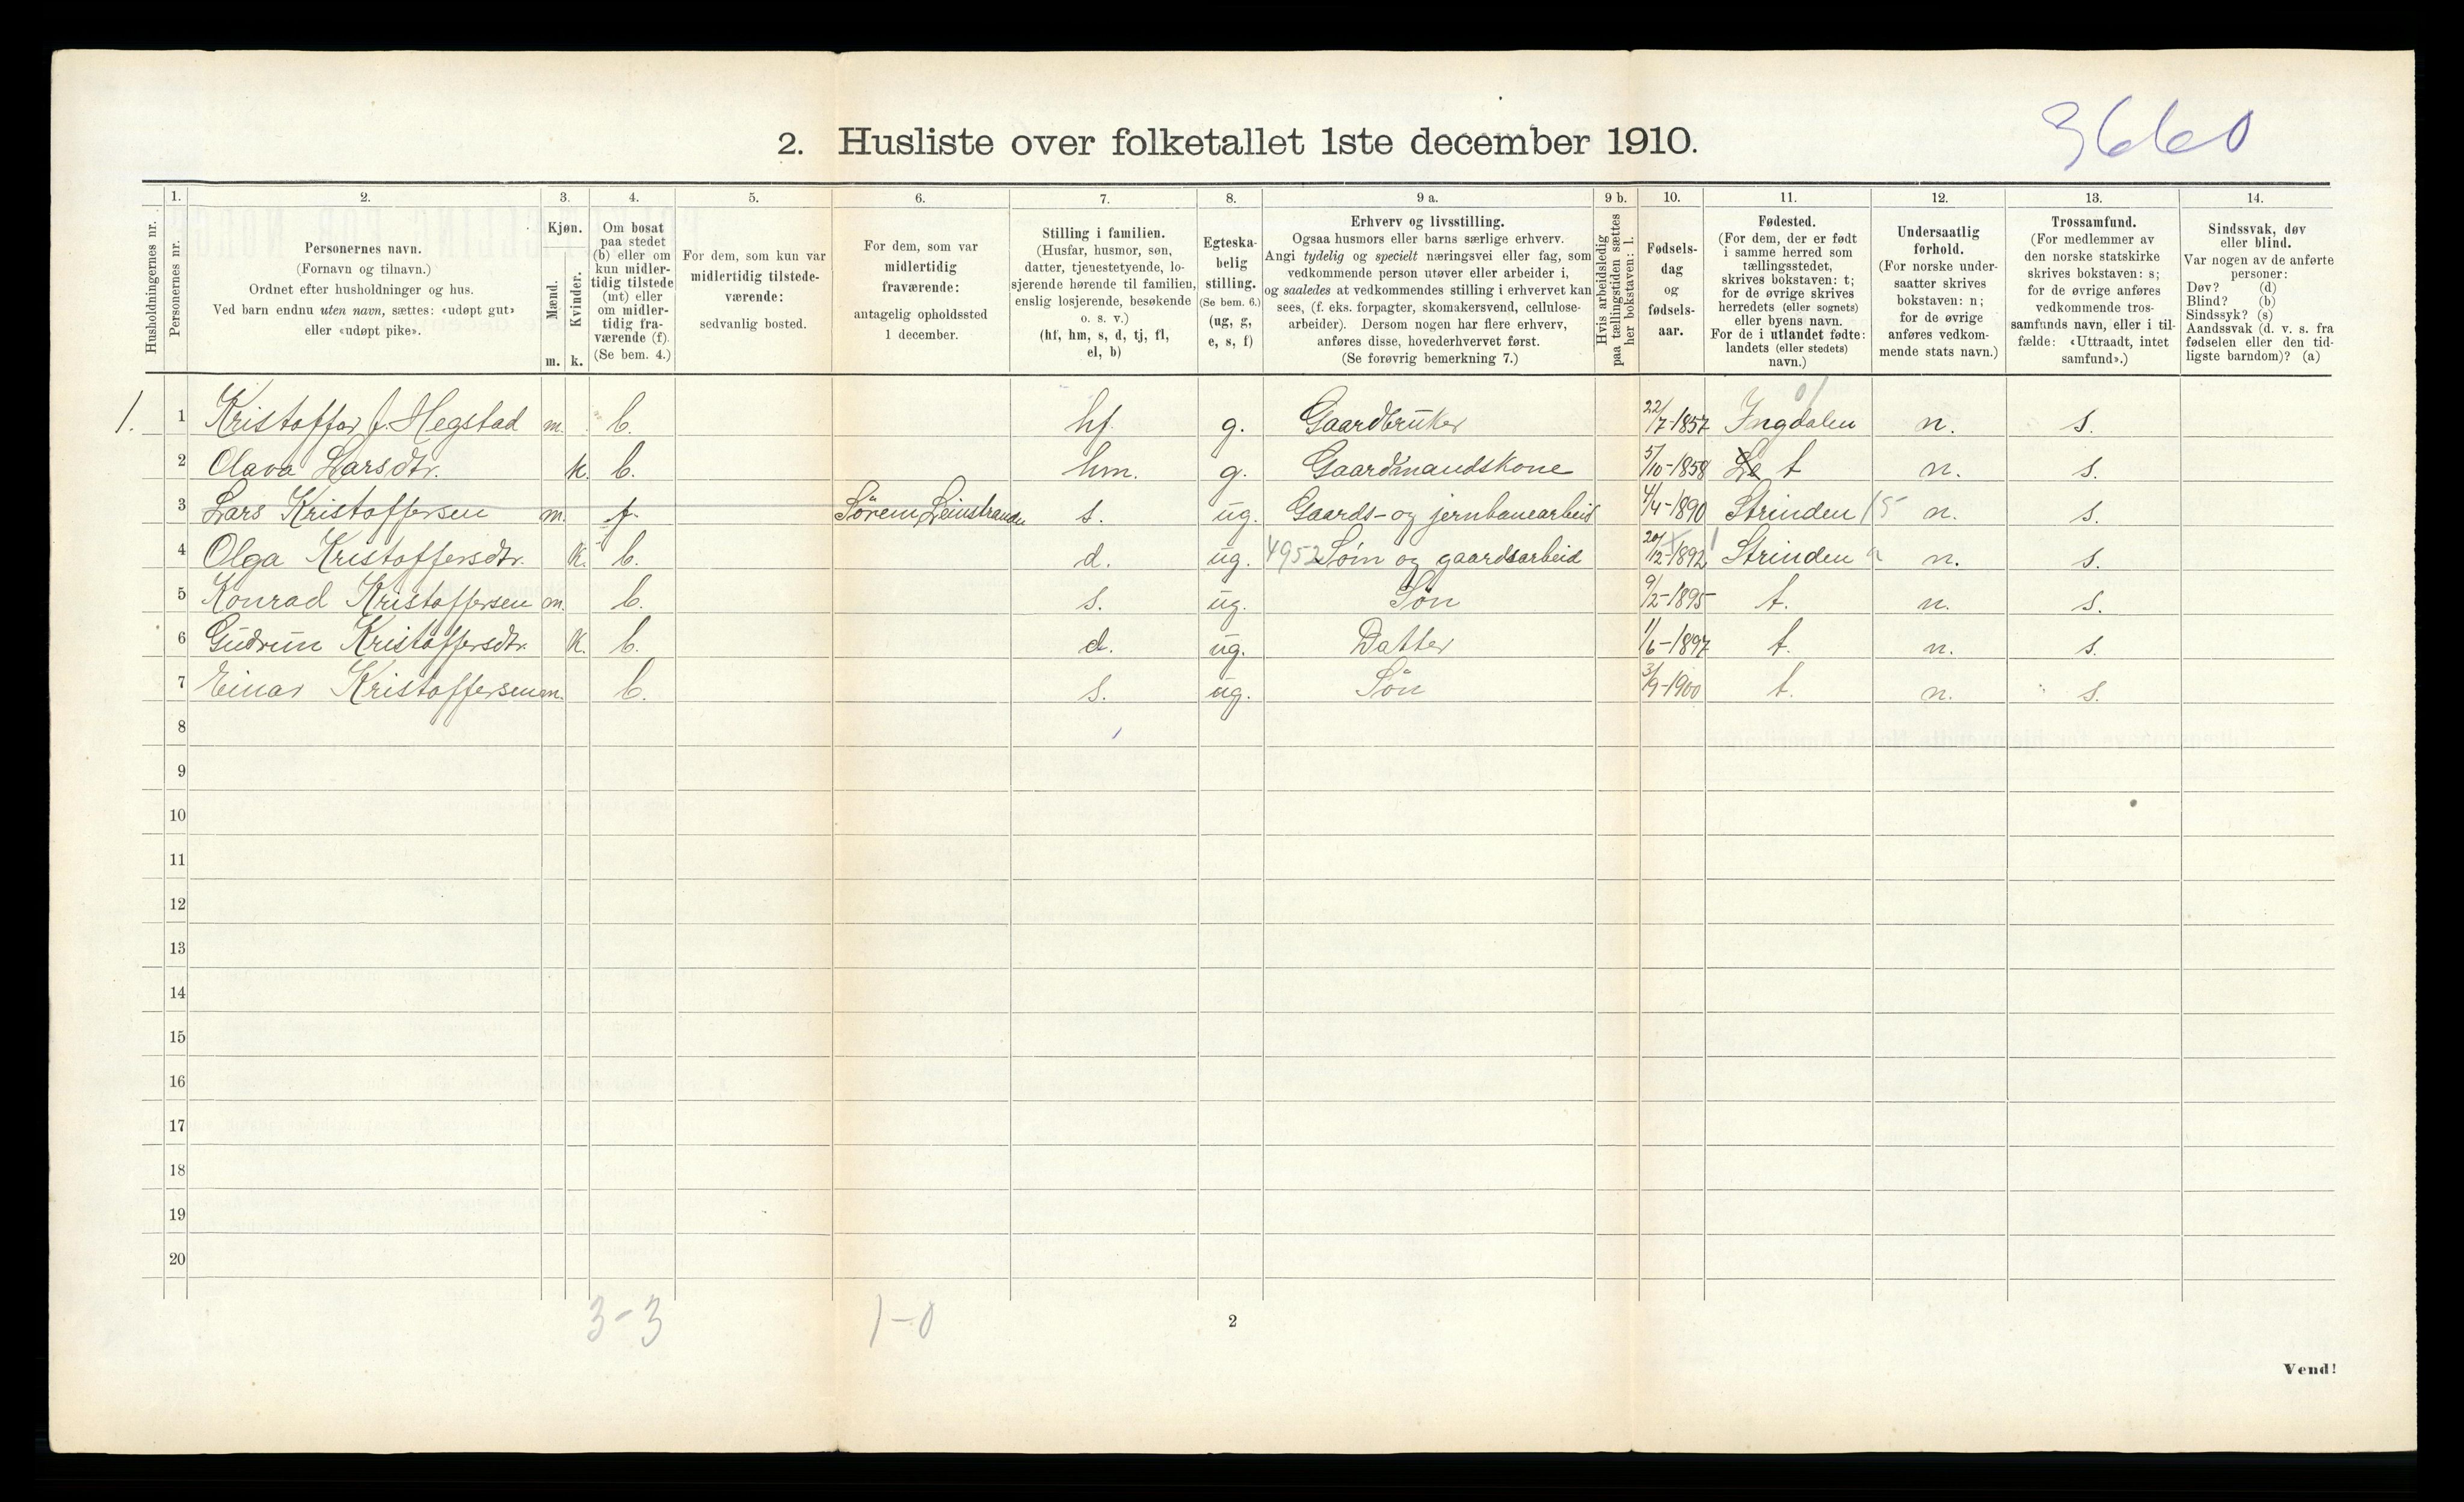 3660
2. Husliste over folketallet 1ste december 1910.
1. 2. 3. 4. 5. 6. 7. 8. 9 a. 9 b. 10. 11. 12. 13. 14.
Husholdningernes nr.
Personernes nr.
Personernes navn.
(Fornavn og tilnavn.)
Ordnet efter husholdninger og hus.
Ved barn endnu uten navn, sættes: «udøpt gut»
eller «udøpt pike».
Kjøn.
Mænd.
Kvinder.
m. k.
Om bosat
paa stedet
(b) eller om
kun midler-
tidig tilstede
(mt) eller
om midler-
tidig fra-
værende (f).
(Se bem. 4.)
For dem, som kun var
midlertidig tilstede-
værende:
sedvanlig bosted.
For dem, som var
midlertidig
fraværende:
antagelig opholdssted
1 december.
Stilling i familien.
(Husfar, husmor, søn,
datter, tjenestetyende, lo-
sjerende hørende til familien,
enslig losjerende, besøkende
o. s. v.)
(hf, hm, s, d, tj, fl,
el, b)
Egteska-
belig
stilling.
(Se bem. 6.)
(ug, g,
e, s, f)
Erhverv og livsstilling.
Ogsaa husmors eller barns særlige erhverv.
Angi tydelig og specielt næringsvei eller fag, som
vedkommende person utøver eller arbeider i,
og saaledes at vedkommendes stilling i erhvervet kan
sees, (f. eks. forpagter, skomakersvend, cellulose-
arbeider). Dersom nogen har flere erhverv,
anføres disse, hovederhvervet først.
(Se forøvrig bemerkning 7.)
Hvis arbeidsledig
paa tællingstiden sættes
her bokstaven: l.
Fødsels-
dag
og
fødsels-
aar.
Fødested.
(For dem, der er født
i samme herred som
tællingsstedet,
skrives bokstaven: t;
for de øvrige skrives
herredets (eller sognets)
eller byens navn.
For de i utlandet fødte:
landets (eller stedets)
navn.)
Undersaatlig
forhold.
(For norske under-
saatter skrives
bokstaven: n;
for de øvrige
anføres vedkom-
mende stats navn.)
Trossamfund.
(For medlemmer av
den norske statskirke
skrives bokstaven: s;
for de øvrige anføres
vedkommende tros-
samfunds navn, eller i til-
fælde: «Uttraadt, intet
samfund».)
Sindssvak, døv
eller blind.
Var nogen av de anførte
personer:
Døv? (d)
Blind? (b)
Sindssyk? (s)
Aandssvak (d. v. s. fra
fødselen eller den tid-
ligste barndom)? (a)
1. 1 Kristoffer J. Hegstad m. b. hf. g. Gaardbruker 22/7-1857 Ingdalen n. s.
2 Olava Larsdtr. k. b. hm. g. Gaardmandskone 5/10-1858 t n. s.
3 Lars Kristoffersen m. f. Sørem, Leinstranden s. ug. Gaards- og jernbanearbeid 4/4-1890 Strinden n. s.
4 Olga Kristoffersdtr. k. b. d. ug. 4952 Søm og gaardsarbeid 20/12-1892 Strinden n. s.
5 Konrad Kristoffersen m. b. s. ug. Søn 9/2-1895 t. n. s.
6 Gudrun Kristoffersdtr. k. b. d. ug. Datter 1/6-1897 t. n. s.
7 Einar Kristoffersen m. b. s. ug. Søn 3/9-1900 t. n. s.
8
9
10
11
12
13
14
15
16
17
18
19
20
3-3 1-0
2
Vend!